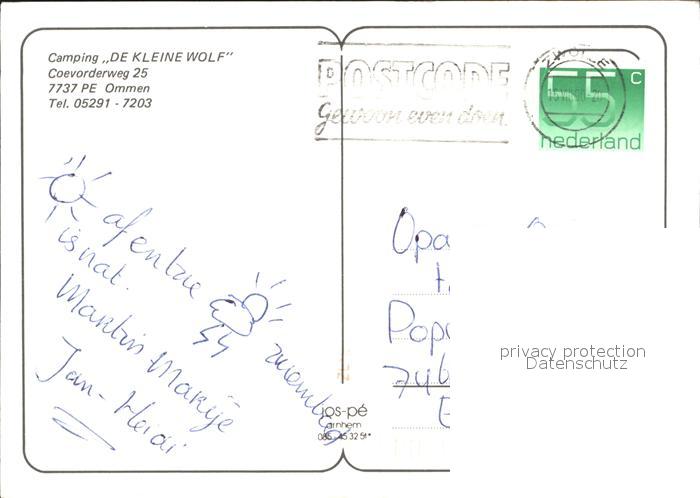 Camping „DE KLEINE WOLF”
Coevorderweg 25
7737 PE Ommen
Tel. 05291 - 7203
POSTCODE
Gewoon even doen.
ZWOLLE
55 c
nederland
af en toe
is nat.
Martin Marije
Jan - Heidi
Opa
Pop
jos-pé
arnhem
085 - 45 32 51*
privacy protection
Datenschutz